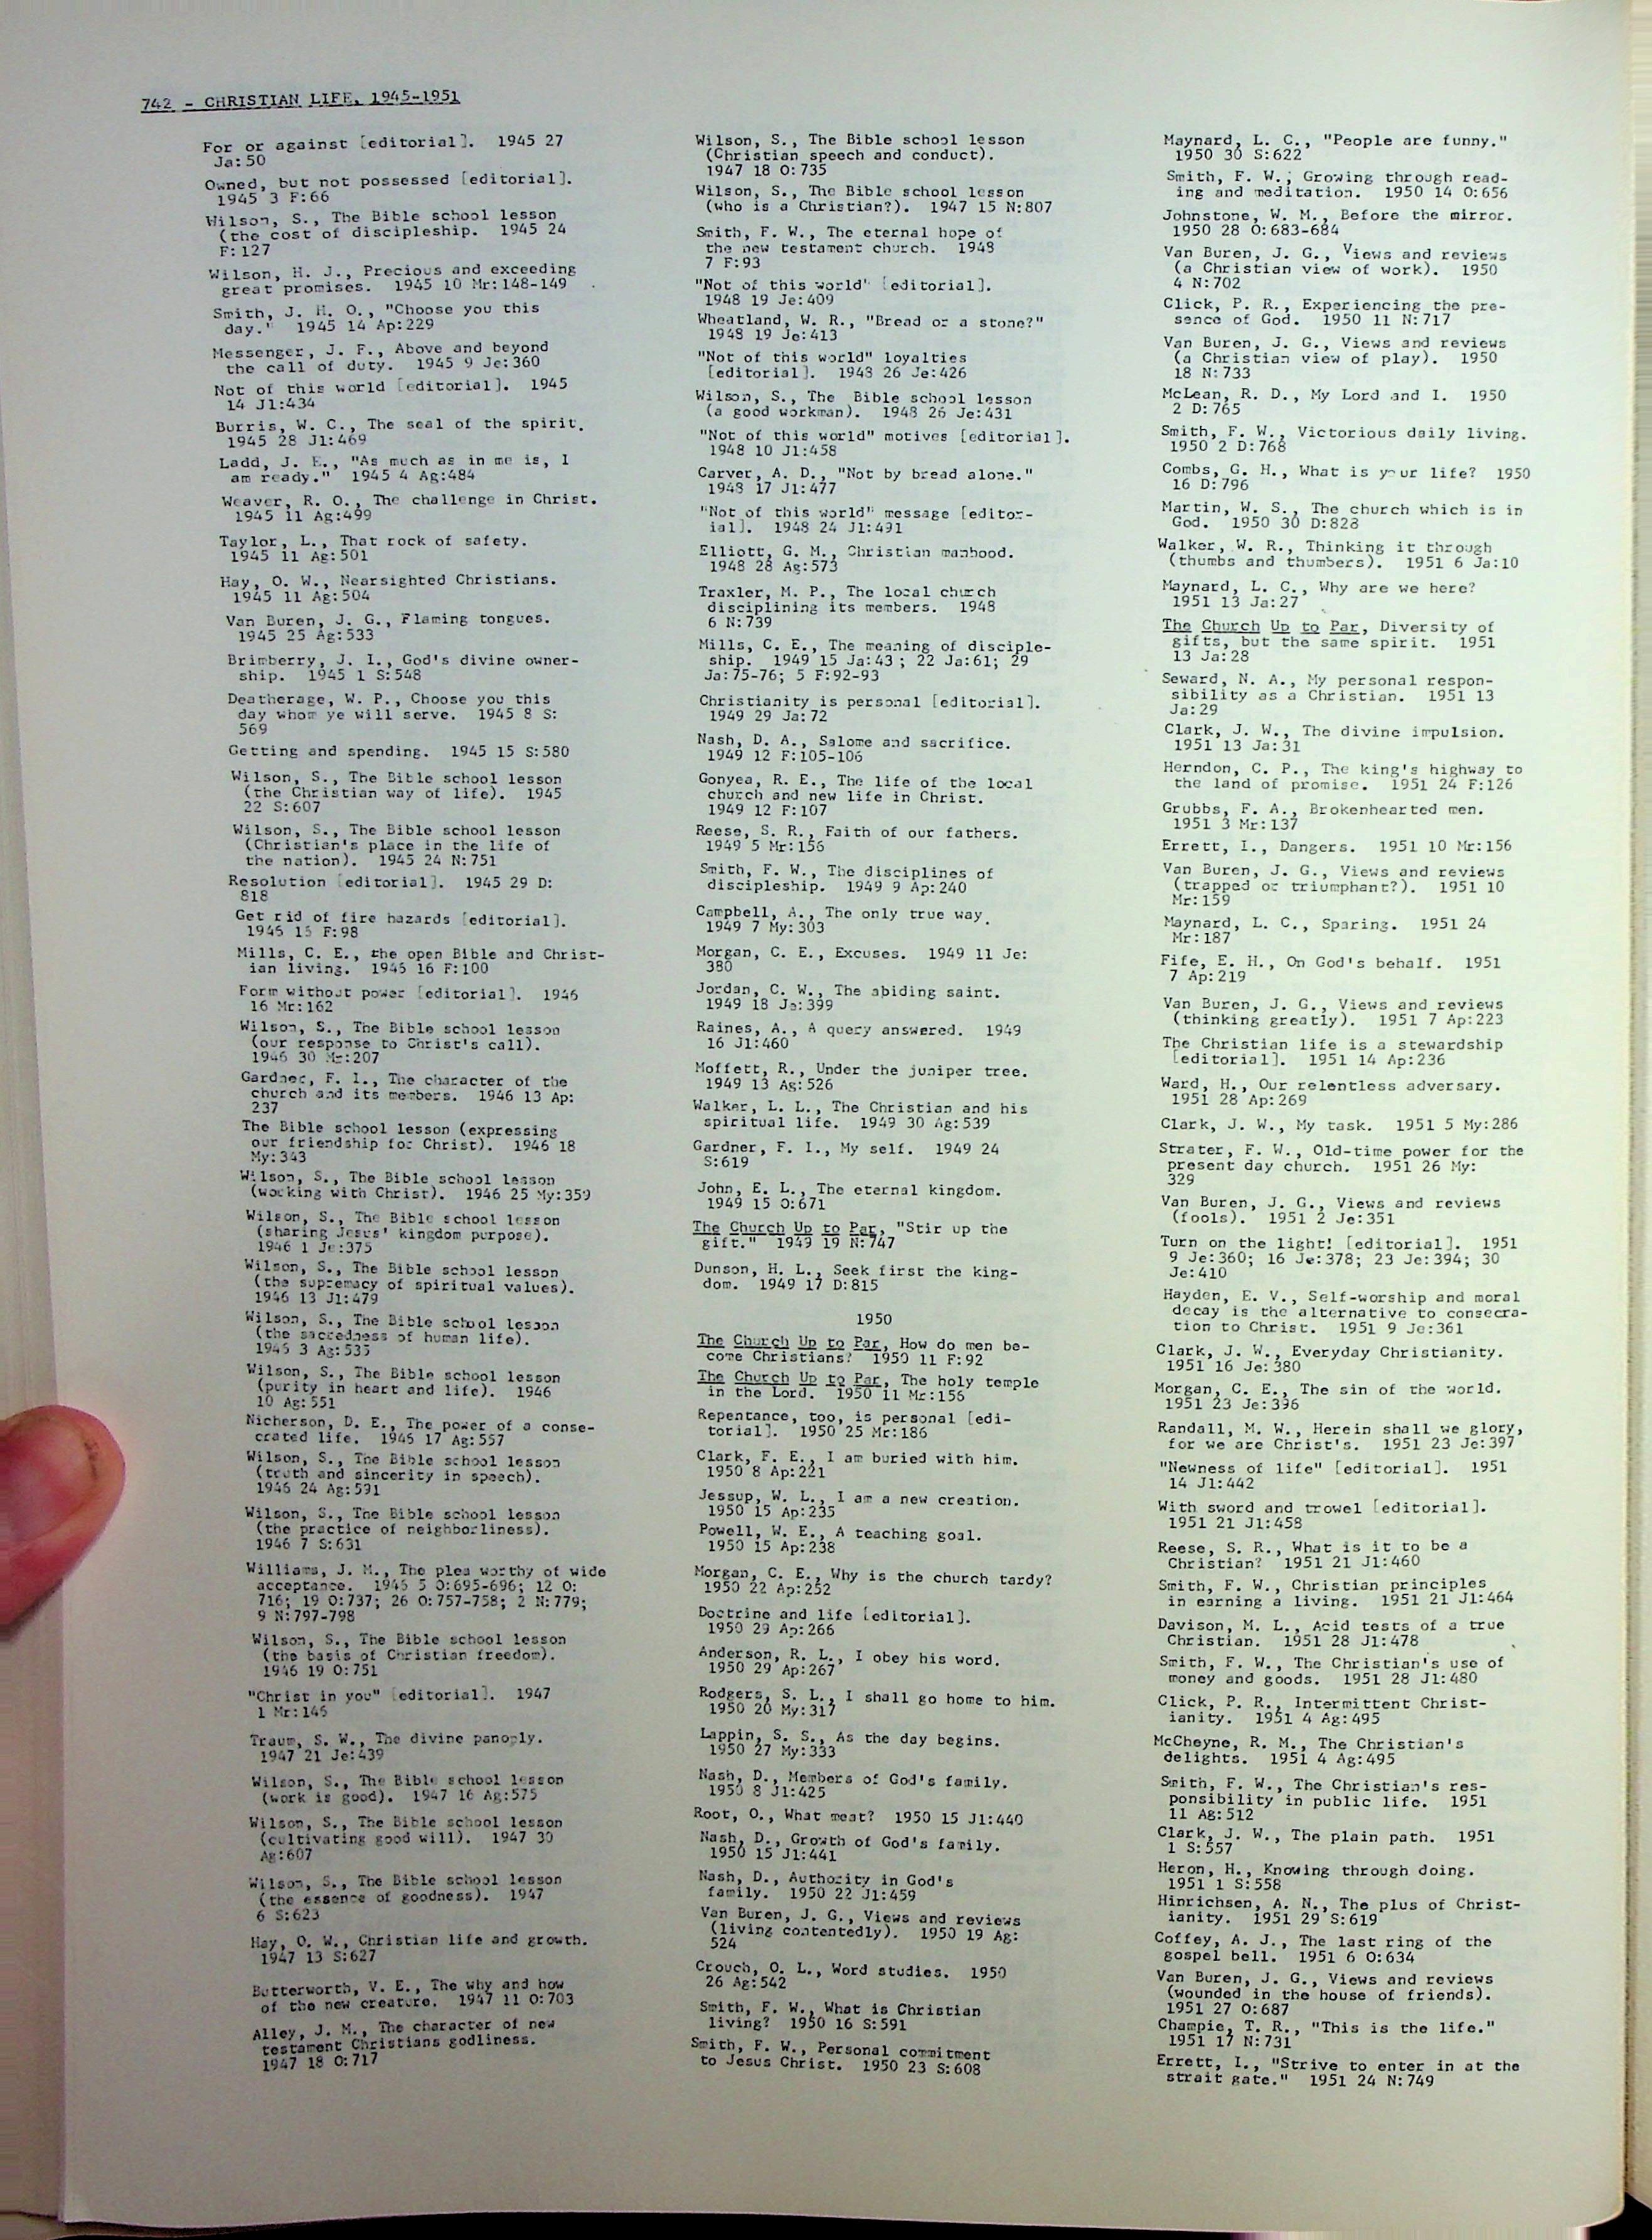 742 - CHRISTIAN LIFE, 1945-1951
For or against [editorial]. 1945 27
Ja:50
Owned, but not possessed [editorial].
1945 3 F:66
Wilson, S., The Bible school lesson
(the cost of discipleship. 1945 24
F:127
Wilson, H. J., Precious and exceeding
great promises. 1945 10 Mr:148-149
Smith, J. H. O., "Choose you this
day." 1945 14 Ap:229
Messenger, J. F., Above and beyond
the call of duty. 1945 9 Je:360
Not of this world [editorial]. 1945
14 Jl:434
Burris, W. C., The seal of the spirit.
1945 28 Jl:469
Ladd, J. E., "As much as in me is, I
am ready." 1945 4 Ag:484
Weaver, R. O., The challenge in Christ.
1945 11 Ag:499
Taylor, L., That rock of safety.
1945 11 Ag:501
Hay, O. W., Nearsighted Christians.
1945 11 Ag:504
Van Buren, J. G., Flaming tongues.
1945 25 Ag:533
Brimberry, J. I., God's divine owner-
ship. 1945 1 S:548
Deatherage, W. P., Choose you this
day whom ye will serve. 1945 8 S:
569
Getting and spending. 1945 15 S:580
Wilson, S., The Bible school lesson
(the Christian way of life). 1945
22 S:607
Wilson, S., The Bible school lesson
(Christian's place in the life of
the nation). 1945 24 N:751
Resolution [editorial]. 1945 29 D:
818
Get rid of fire hazards [editorial].
1946 16 F:98
Mills, C. E., the open Bible and Christ-
ian living. 1946 16 F:100
Form without power [editorial]. 1946
16 Mr:162
Wilson, S., The Bible school lesson
(our response to Christ's call).
1946 30 Mr:207
Gardner, F. I., The character of the
church and its members. 1946 13 Ap:
237
The Bible school lesson (expressing
our friendship for Christ). 1946 18
My:343
Wilson, S., The Bible school lesson
(working with Christ). 1946 25 My:359
Wilson, S., The Bible school lesson
(sharing Jesus' kingdom purpose).
1946 1 Je:375
Wilson, S., The Bible school lesson
(the supremacy of spiritual values).
1946 13 Jl:479
Wilson, S., The Bible school lesson
(the sacredness of human life).
1946 3 Ag:535
Wilson, S., The Bible school lesson
(purity in heart and life). 1946
10 Ag:551
Nicherson, D. E., The power of a conse-
crated life. 1946 17 Ag:557
Wilson, S., The Bible school lesson
(truth and sincerity in speech).
1946 24 Ag:591
Wilson, S., The Bible school lesson
(the practice of neighborliness).
1946 7 S:631
Williams, J. M., The plea worthy of wide
acceptance. 1946 5 O:695-696; 12 O:
716; 19 O:737; 26 O:757-758; 2 N:779;
9 N:797-798
Wilson, S., The Bible school lesson
(the basis of Christian freedom).
1946 19 O:751
"Christ in you" [editorial]. 1947
1 Mr:146
Traum, S. W., The divine panoply.
1947 21 Je:439
Wilson, S., The Bible school lesson
(work is good). 1947 16 Ag:575
Wilson, S., The Bible school lesson
(cultivating good will). 1947 30
Ag:607
Wilson, S., The Bible school lesson
(the essence of goodness). 1947
6 S:623
Hay, O. W., Christian life and growth.
1947 13 S:627
Butterworth, V. E., The why and how
of the new creature. 1947 11 O:703
Alley, J. M., The character of new
testament Christians godliness.
1947 18 O:717
Wilson, S., The Bible school lesson
(Christian speech and conduct).
1947 18 O:735
Wilson, S., The Bible school lesson
(who is a Christian?). 1947 15 N:807
Smith, F. W., The eternal hope of
the new testament church. 1948
7 F:93
"Not of this world" [editorial].
1948 19 Je:409
Wheatland, W. R., "Bread or a stone?"
1948 19 Je:413
"Not of this world" loyalties
[editorial]. 1948 26 Je:426
Wilson, S., The Bible school lesson
(a good workman). 1948 26 Je:431
"Not of this world" motives [editorial].
1948 10 Jl:458
Carver, A. D., "Not by bread alone."
1948 17 Jl:477
"Not of this world" message [editor-
ial]. 1948 24 Jl:491
Elliott, G. M., Christian manhood.
1948 28 Ag:573
Traxler, M. P., The local church
disciplining its members. 1948
6 N:739
Mills, C. E., The meaning of disciple-
ship. 1949 15 Ja:43; 22 Ja:61; 29
Ja:75-76; 5 F:92-93
Christianity is personal [editorial].
1949 29 Ja:72
Nash, D. A., Salome and sacrifice.
1949 12 F:105-106
Gonyea, R. E., The life of the local
church and new life in Christ.
1949 12 F:107
Reese, S. R., Faith of our fathers.
1949 5 Mr:156
Smith, F. W., The disciplines of
discipleship. 1949 9 Ap:240
Campbell, A., The only true way.
1949 7 My:303
Morgan, C. E., Excuses. 1949 11 Je:
380
Jordan, C. W., The abiding saint.
1949 18 Je:399
Raines, A., A query answered. 1949
16 Jl:460
Moffett, R., Under the juniper tree.
1949 13 Ag:526
Walker, L. L., The Christian and his
spiritual life. 1949 30 Ag:539
Gardner, F. I., My self. 1949 24
S:619
John, E. L., The eternal kingdom.
1949 15 O:671
The Church Up to Par, "Stir up the
gift." 1949 19 N:747
Dunson, H. L., Seek first the king-
dom. 1949 17 D:815
1950
The Church Up to Par, How do men be-
come Christians? 1950 11 F:92
The Church Up to Par, The holy temple
in the Lord. 1950 11 Mr:156
Repentance, too, is personal [edi-
torial]. 1950 25 Mr:186
Clark, F. E., I am buried with him.
1950 8 Ap:221
Jessup, W. L., I am a new creation.
1950 15 Ap:235
Powell, W. E., A teaching goal.
1950 15 Ap:238
Morgan, C. E., Why is the church tardy?
1950 22 Ap:252
Doctrine and life [editorial].
1950 29 Ap:266
Anderson, R. L., I obey his word.
1950 29 Ap:267
Rodgers, S. L., I shall go home to him.
1950 20 My:317
Lappin, S. S., As the day begins.
1950 27 My:333
Nash, D., Members of God's family.
1950 8 Jl:425
Root, O., What meat? 1950 15 Jl:440
Nash, D., Growth of God's family.
1950 15 Jl:441
Nash, D., Authority in God's
family. 1950 22 Jl:459
Van Buren, J. G., Views and reviews
(living contentedly). 1950 19 Ag:
524
Crouch, O. L., Word studies. 1950
26 Ag:542
Smith, F. W., What is Christian
living? 1950 16 S:591
Smith, F. W., Personal commitment
to Jesus Christ. 1950 23 S:608
Maynard, L. C., "People are funny."
1950 30 S:622
Smith, F. W., Growing through read-
ing and meditation. 1950 14 O:656
Johnstone, W. M., Before the mirror.
1950 28 O:683-684
Van Buren, J. G., Views and reviews
(a Christian view of work). 1950
4 N:702
Click, P. R., Experiencing the pre-
sence of God. 1950 11 N:717
Van Buren, J. G., Views and reviews
(a Christian view of play). 1950
18 N:733
McLean, R. D., My Lord and I. 1950
2 D:765
Smith, F. W., Victorious daily living.
1950 2 D:768
Combs, G. H., What is your life? 1950
16 D:796
Martin, W. S., The church which is in
God. 1950 30 D:828
Walker, W. R., Thinking it through
(thumbs and thumbers). 1951 6 Ja:10
Maynard, L. C., Why are we here?
1951 13 Ja:27
The Church Up to Par, Diversity of
gifts, but the same spirit. 1951
13 Ja:28
Seward, N. A., My personal respon-
sibility as a Christian. 1951 13
Ja:29
Clark, J. W., The divine impulsion.
1951 13 Ja:31
Herndon, C. P., The king's highway to
the land of promise. 1951 24 F:126
Grubbs, F. A., Brokenhearted men.
1951 3 Mr:137
Errett, I., Dangers. 1951 10 Mr:156
Van Buren, J. G., Views and reviews
(trapped or triumphant?). 1951 10
Mr:159
Maynard, L. C., Sparing. 1951 24
Mr:187
Fife, E. H., On God's behalf. 1951
7 Ap:219
Van Buren, J. G., Views and reviews
(thinking greatly). 1951 7 Ap:223
The Christian life is a stewardship
[editorial]. 1951 14 Ap:236
Ward, H., Our relentless adversary.
1951 28 Ap:269
Clark, J. W., My task. 1951 5 My:286
Strater, F. W., Old-time power for the
present day church. 1951 26 My:
329
Van Buren, J. G., Views and reviews
(fools). 1951 2 Je:351
Turn on the light! [editorial]. 1951
9 Je:360; 16 Je:378; 23 Je:394; 30
Je:410
Hayden, E. V., Self-worship and moral
decay is the alternative to consecra-
tion to Christ. 1951 9 Je:361
Clark, J. W., Everyday Christianity.
1951 16 Je:380
Morgan, C. E., The sin of the world.
1951 23 Je:396
Randall, M. W., Herein shall we glory,
for we are Christ's. 1951 23 Je:397
"Newness of life" [editorial]. 1951
14 Jl:442
With sword and trowel [editorial].
1951 21 Jl:458
Reese, S. R., What is it to be a
Christian? 1951 21 Jl:460
Smith, F. W., Christian principles
in earning a living. 1951 21 Jl:464
Davison, M. L., Acid tests of a true
Christian. 1951 28 Jl:478
Smith, F. W., The Christian's use of
money and goods. 1951 28 Jl:480
Click, P. R., Intermittent Christ-
ianity. 1951 4 Ag:495
McCheyne, R. M., The Christian's
delights. 1951 4 Ag:495
Smith, F. W., The Christian's res-
ponsibility in public life. 1951
11 Ag:512
Clark, J. W., The plain path. 1951
1 S:557
Heron, H., Knowing through doing.
1951 1 S:558
Hinrichsen, A. N., The plus of Christ-
ianity. 1951 29 S:619
Coffey, A. J., The last ring of the
gospel bell. 1951 6 O:634
Van Buren, J. G., Views and reviews
(wounded in the house of friends).
1951 27 O:687
Champie, T. R., "This is the life."
1951 17 N:731
Errett, I., "Strive to enter in at the
strait gate." 1951 24 N:749